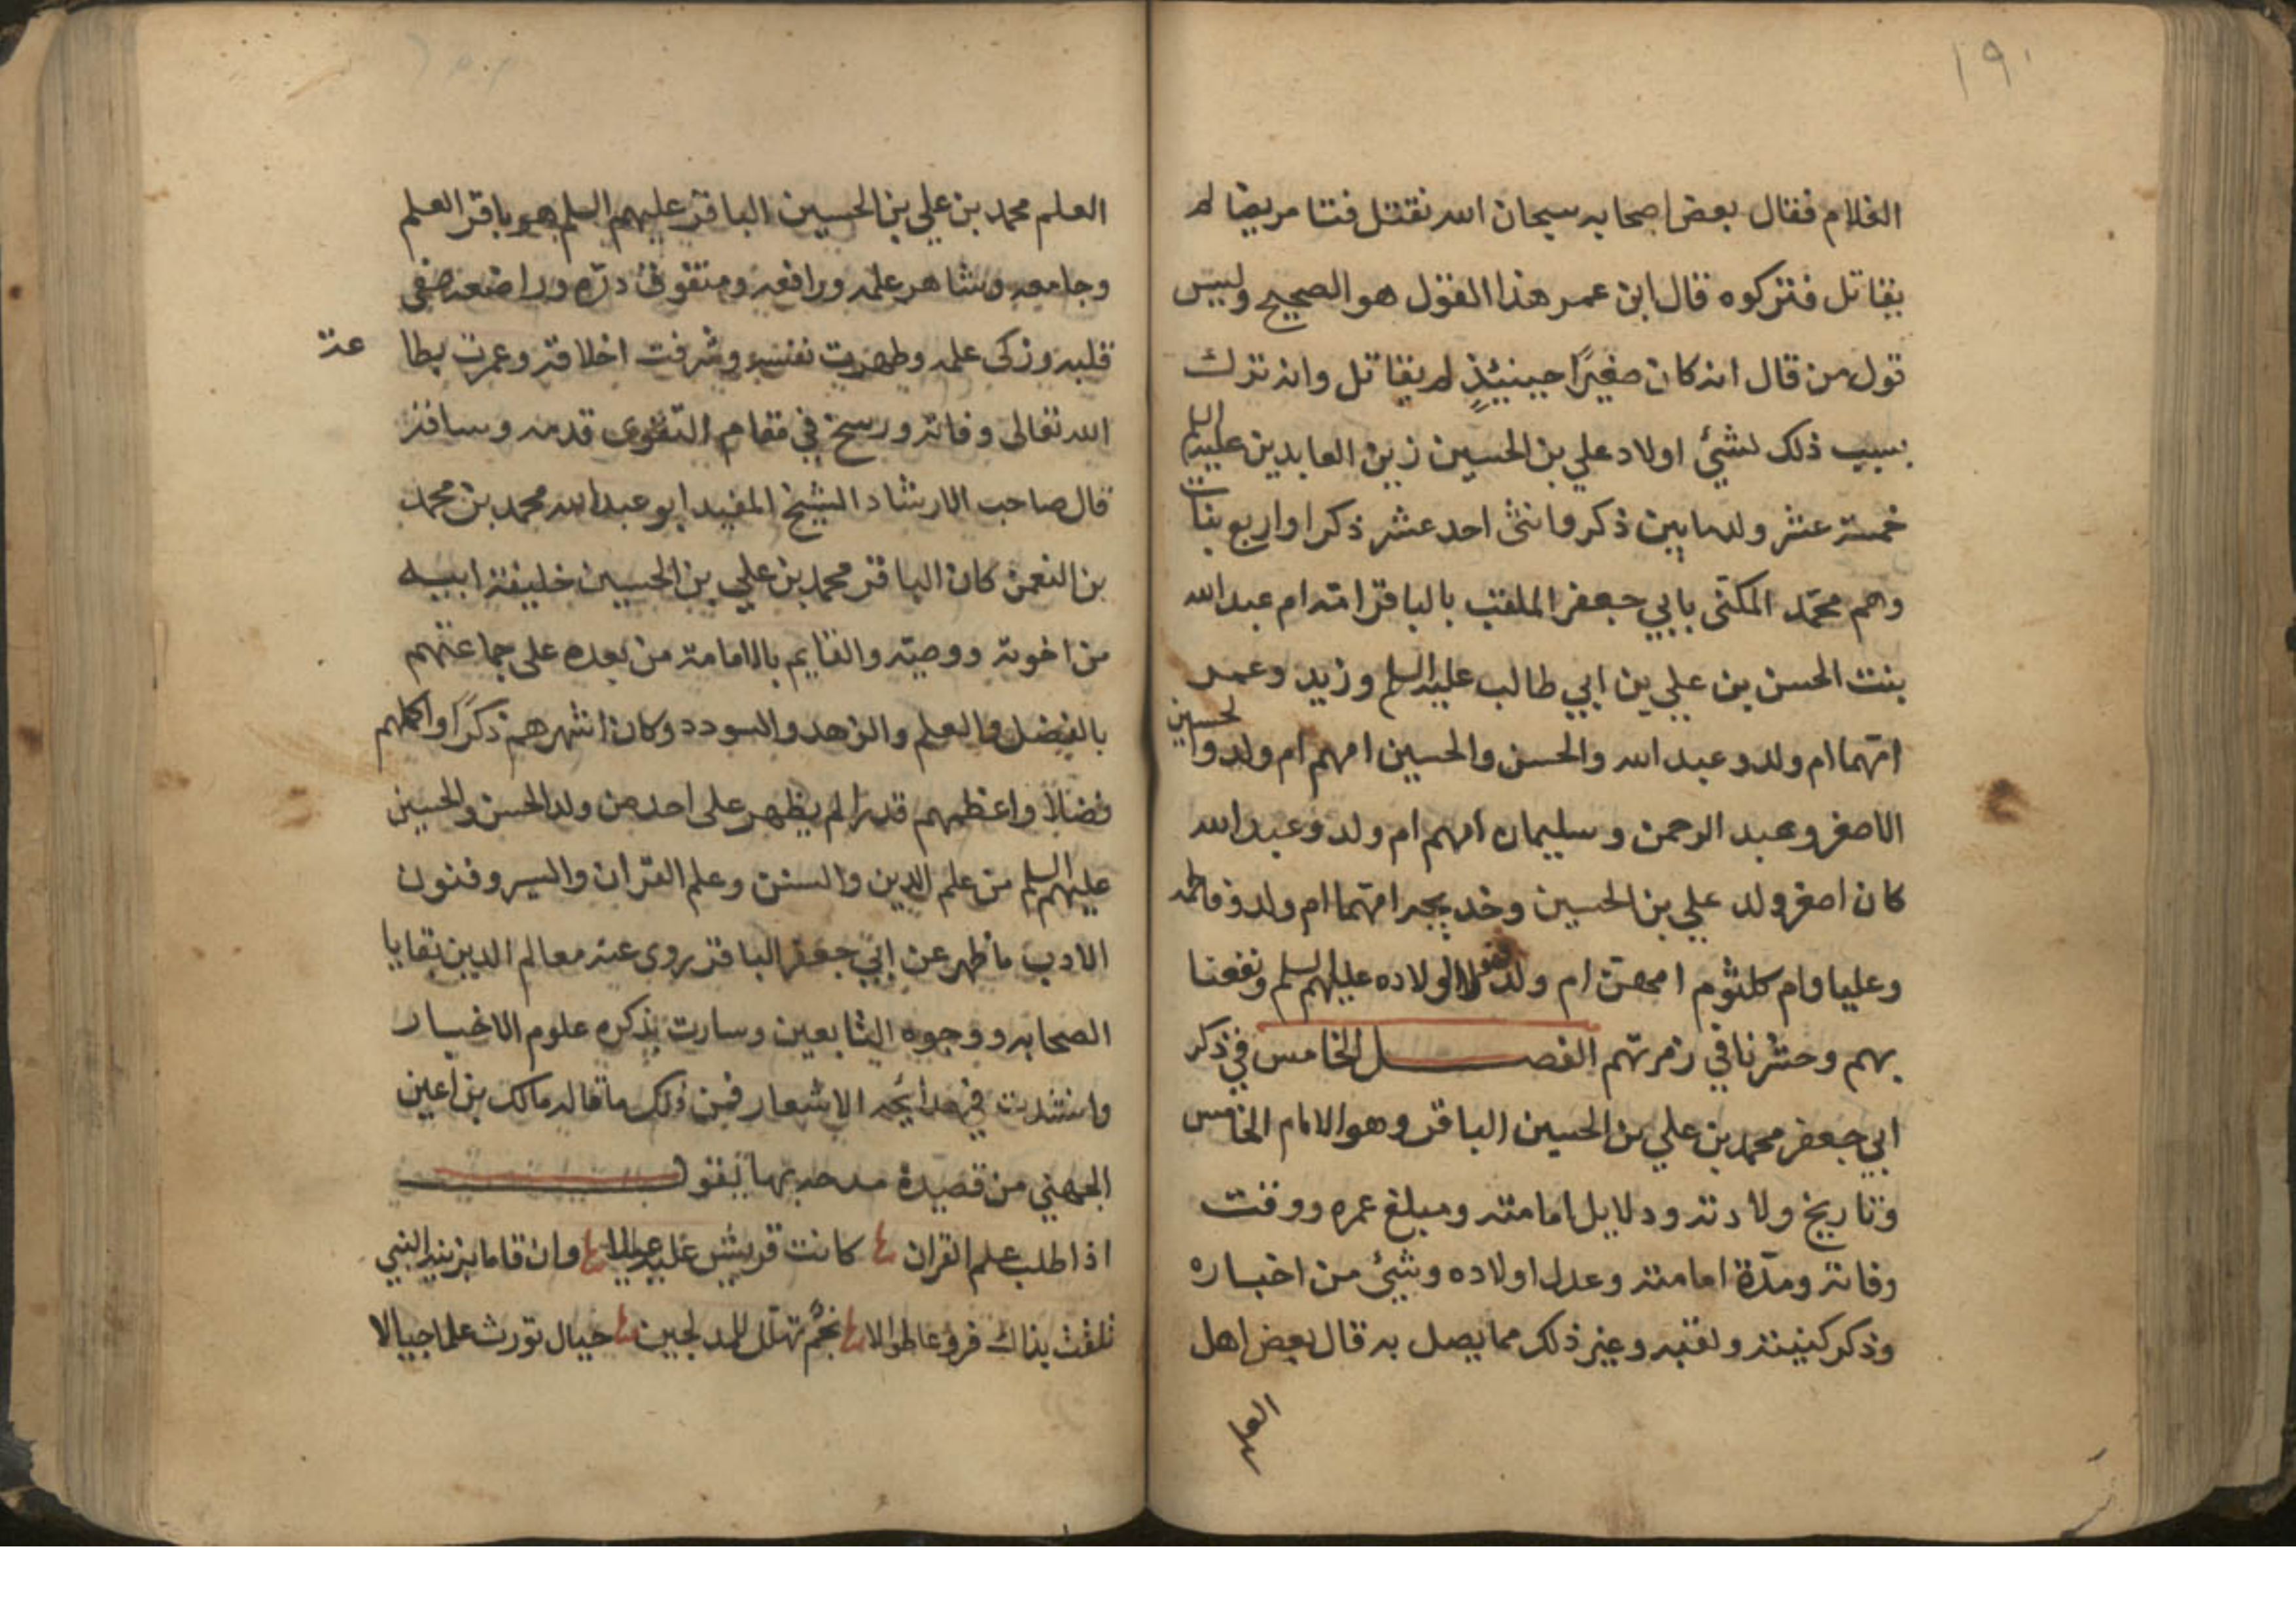 ١٩٠
الغلام فقال بعض اصحابه سبحان الله نقتل فتا مريضا لم
يقاتل فتركوه قال ابن عمر هذا القول هو الصحيح وليس
قول من قال انه كان صغيرًا حينئذٍ لم يقاتل وانه ترك
بسبب ذلك لشئ اولاد علي بن الحسين زين العابدين عليه السلم
خمسة عشر ولدا ما بين ذكر وانثى احد عشر ذكرا واربع بنات
وهم محمّد المكنّى بابي جعفر الملقب بالباقر امّه ام عبد الله
بنت الحسن بن علي بن ابي طالب عليه السلم وزيد وعمر
امّهما ام ولد وعبد الله والحسن والحسين امهم ام ولد والحسين
الاصغر وعبد الرحمن وسليمان امهم ام ولد وعبد الله
كان اصغر ولد علي بن الحسين وخديجه امّهما ام ولد وفاطمه
وعليا وام كلثوم امهنّ ام ولد اولاده عليهم السلم ونفعنا
بهم وحشرنا في زمرتهم الفصل الخامس في ذكر
ابي جعفر محمد بن علي بن الحسين الباقر وهو الامام الخامس
وتاريخ ولادته ودلايل امامته ومبلغ عمره ووقت
وفاته ومدّة امامته وعدد اولاده وشئ من اخباره
وذكر كنيته ولقبه وغير ذلك مما يصل به قال بعض اهل
العلم
العلم محمد بن علي بن الحسين الباقر عليهم السلم هو باقر العلم
وجامعه وشاهر علمه ورافعه ومتفوق درّه وراضعه صفى
قلبه وزكى علمه وطهرت نفسه وشرفت اخلاقه وعمرت بطا عة
الله تعالى وفاته ورسخ في مقام التقوى قدمه وسافر
قال صاحب الارشاد الشيخ المفيد ابو عبد الله محمد بن محمد
بن النعمن كان الباقر محمد بن علي بن الحسين خليفة ابيه
من اخوته ووصيّه والقايم بالامامة من بعده على جماعتهم
بالفضل والعلم والزهد والسودد وكان اشهرهم ذكرًا واكملهم
فضلا واعظمهم قدرا لم يظهر على احد من ولد الحسن والحسين
عليهم السلم من علم الدين والسنن وعلم القران والسير وفنون
الادب ما ظهر عن ابي جعفر الباقر روى عنه معالم الدين بقايا
الصحابه ووجوه التابعين وسارت بذكره علوم الاخبار
وانشدت في مدايحه الاشعار فمن ذلك ما قاله مالك بن اعين
الجهني من قصيدة مدحه بها يقول
اذا طلب علم القران كانت قريش عليه عيالا وان قام ابن بنت النبي
تلقت بذاك فروعا طوالا نجم تهلل للمدلجين جبال تورث علما جبالا